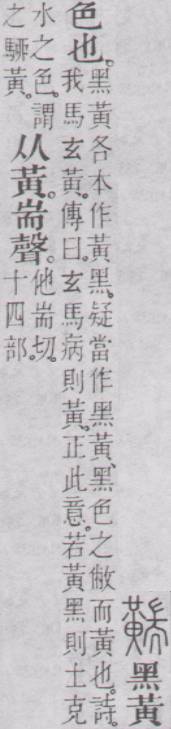 黑黃
色也。
黑黃各本作黃黑。疑當作黑黃、黑色之敝而黃也。詩
我馬玄黃。傳曰。玄馬病則黃。正此意。若黃黑則土克
水之色。謂
之駵黃。
从黃。耑聲。
他耑切。
十四部。